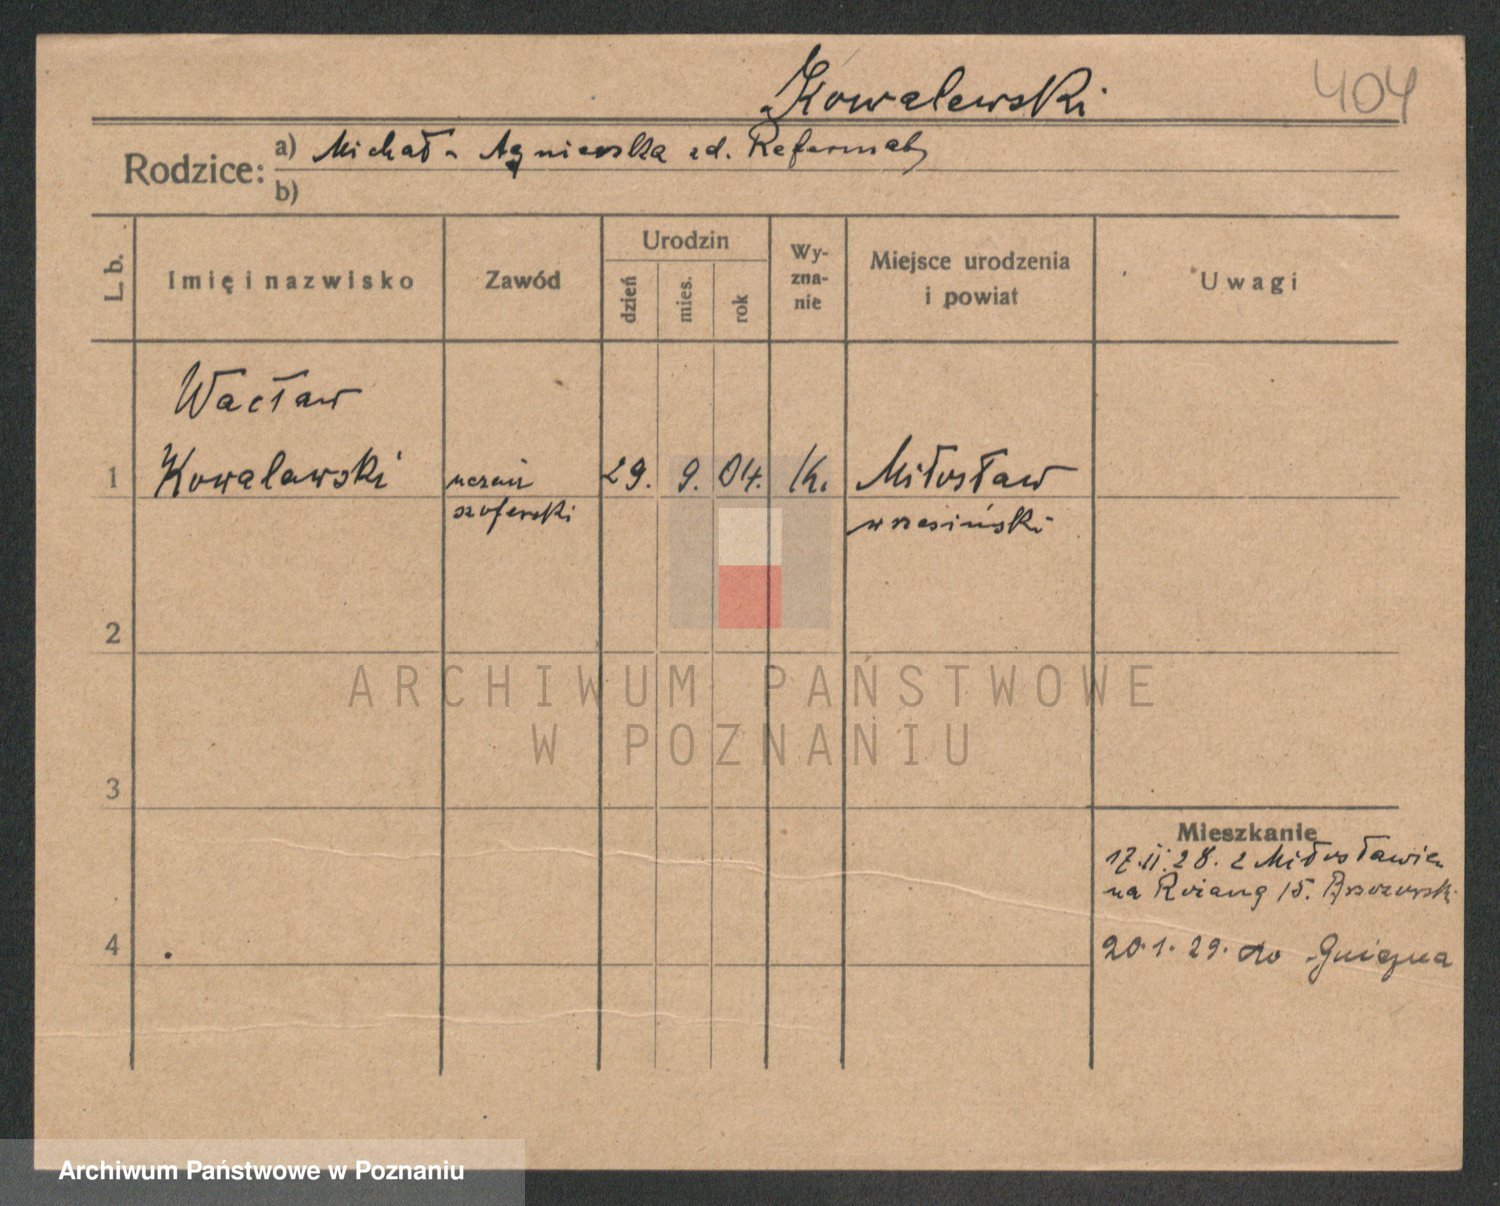 Kowalewski 404
Rodzice: a) Michał - Agnieszka zd.
b)
L. b.
Imię i nazwisko
Zawód
Urodzin
dzień
mies.
rok
Wy-
zna-
nie
Miejsce urodzenia
i powiat
Uwagi
Wacław
1 Kowalewski uczeń 29. 9. 04. K. Miłosław
szoferski wrzesiński
2
ARCHIWUM PAŃSTWOWE
W POZNANIU
3
Mieszkanie
17.II.28. z Miłosławia
na 15.
4 20.1.29. do Gniezna
Archiwum Państwowe w Poznaniu